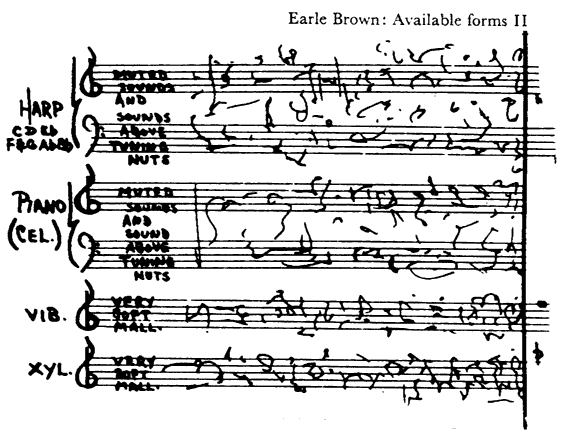 Earle Brown: Available forms II
HARP
MUTED
SOUNDS
AND
SOUNDS
ABOVE
TUNING
NUTS
PIANO
(CEL.)
MUTED
SOUNDS
AND
SOUND
ABOVE
TUNING
NUTS
VIB.
VERY
SOFT
MALL.
XYL.
VERY
SOFT
MALL.